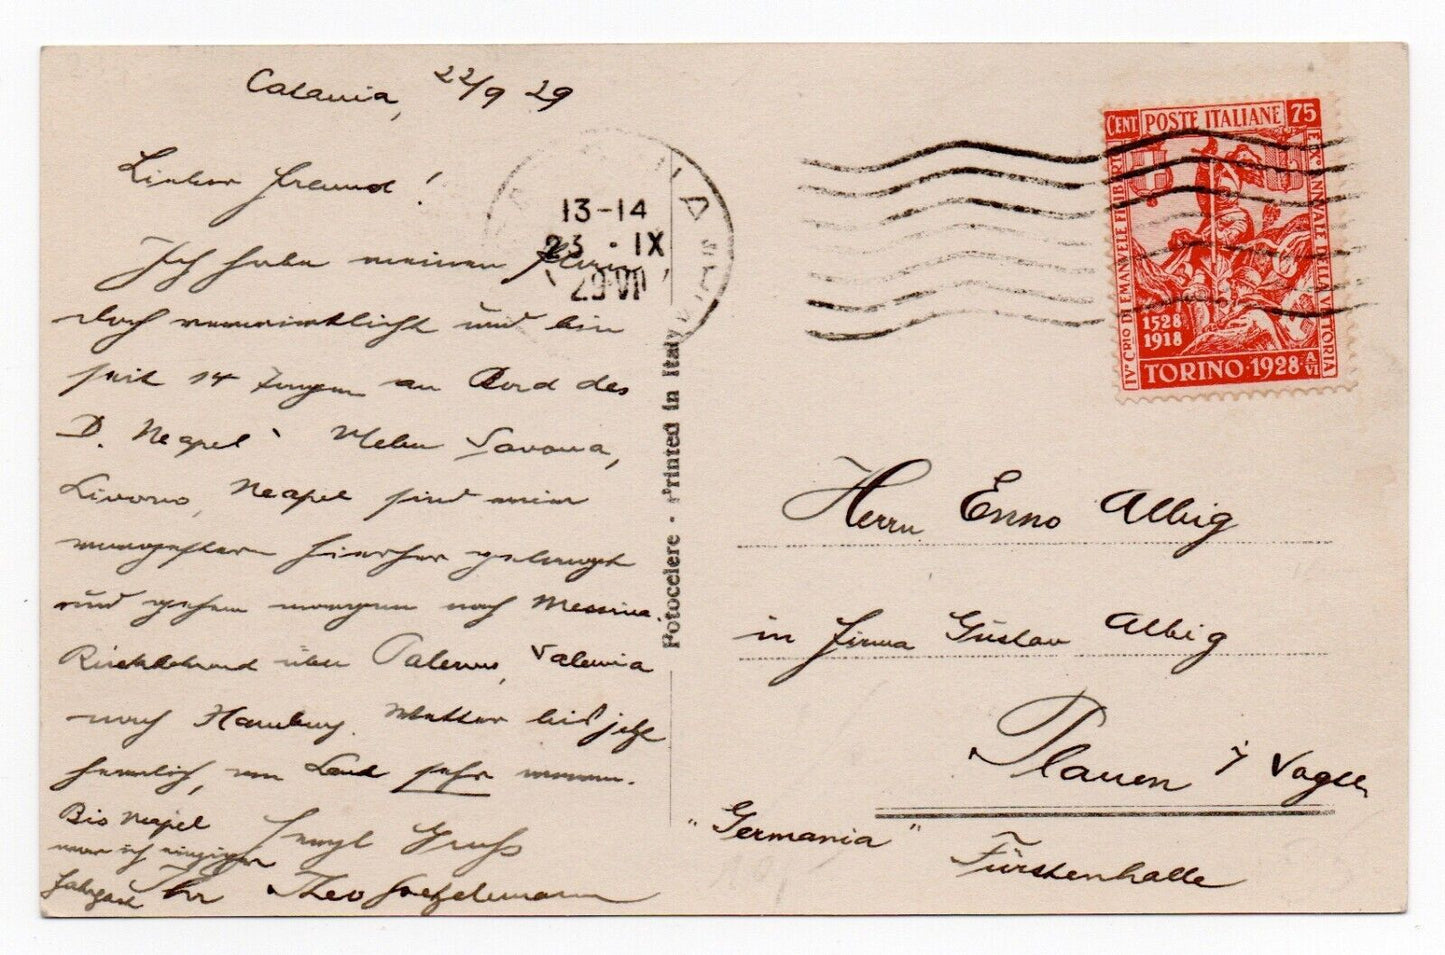 Catania, 22/9 29
Lieber Freund!
Ich habe meinen
doch verwirklicht und bin
seit 14 Tagen an Bord des
D. Neapel. Ueber Savona,
Livorno, Neapel sind wir
hierher gelangt
und gehen morgen nach Messina.
Rückfahrt über Palermo, Valencia
nach Hamburg. Wetter bis jetzt
herrlich, an Land sehr warm.
Bis Neapel
war ich einziger
Fahrgast
Herzl. Gruss
Ihr Theo
13-14
23 · IX
29 VII
Fotocelere - Printed in Italy
CENT POSTE ITALIANE 75
IVº Crio DI EMANUELE FILIBERTO
Xº ANNUALE DELLA VITTORIA
1528
1918
TORINO · 1928 A VI
Herrn Enno Albig
in Firma Gustav Albig
Plauen i/ Vogtl.
"Germania"
Fürstenhalle